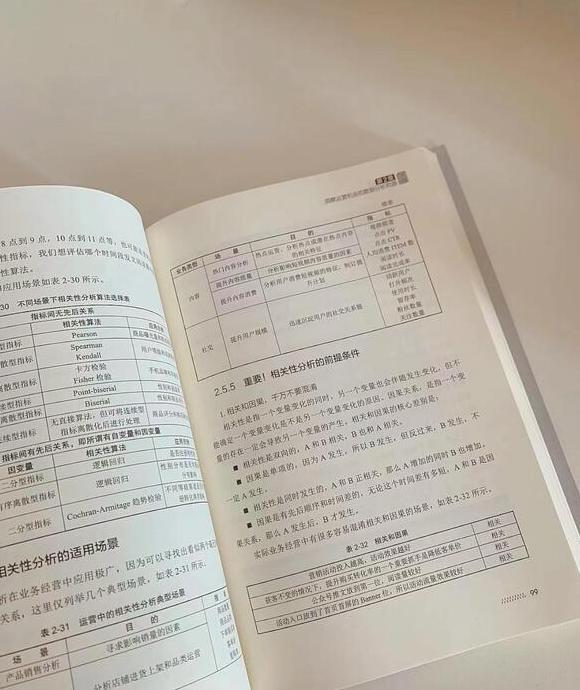 8点到9点，10点到11点等，也可
性指标，我们想评估哪个时间段发文
性算法。
应用场景如表 2-30 所示。
30 不同场景下相关性分析算法选择表
指标间无先后关系
相关性算法
型指标 Pearson
离散型指标 Spearman
Kendall
离散型指标 卡方检验
Fisher 检验
续型指标 Point-biserial
型指标 Biserial
离散型指标 无直接算法，但可将连续型
连续型指标 指标离散化后进行处理
指标间有先后关系，即所谓有自变量和因变量
因变量 相关性算法
二分型指标 逻辑回归
有序离散型指标 逻辑回归
二分型指标 Cochran-Armitage 趋势检验
相关性分析的适用场景
析在业务经营中应用极广，因为可以寻找出看似两个
关系，这里仅列举几个典型场景，如表 2-31 所示。
表 2-31 运营中的相关性分析典型场景
场 景 目 的
产品销售分析 寻求影响销量的因素
分析店铺进货上架和品类运营
第2章
续表
业务类型 场 景 目 的 指 标
内容 热门内容分析 热点运营，分析热点或潜在热点内容的相关特征
提升内容质量 分析影响短视频的内容质量的因素
提升内容消费 分析用户消费短视频的特征，制订提升计划
社交 提升用户规模 迅速沉淀用户的社交关系链
点击 PV
点击 CTR
人均消费 ITEM 数
阅读时长
阅读完成率
活跃用户
打开频次
使用时长
留存率
粉丝数量
关注数量
2.5.5 重要！相关性分析的前提条件
1. 相关和因果，千万不要混淆
相关性是指一个变量变化的同时，另一个变量也会伴随发生变化，但不
能确定一个变量变化是不是另一个变量变化的原因，因果关系，是指一个变
量的存在一定会导致另一个变量的产生。相关和因果的核心差别是：
■ 相关性是双向的，A 和 B 相关，B 也和 A 相关。
■ 因果是单项的，因为 A 发生，所以 B 发生，但反过来，B 发生，不
一定 A 发生。
■ 相关性是同时发生的，A 和 B 正相关，那么 A 增加的同时 B 也增加。
■ 因果是有先后顺序和时间差的，无论这个时间差有多短，A 和 B 是因
果关系，那么 A 发生后，B 才发生。
实际业务经营中有很多容易混淆相关和因果的场景，如表 2-32 所示。
表 2-32 相关和因果
营销活动投入越高，活动效果越好 相关
获客不变的情况下，提升购买转化率的一个重要抓手是降低客单价 相关
公众号推文放到第一位，阅读量较好 相关
活动入口放到了首页首屏的 Banner 位，所以活动质量效果较好 相关
99